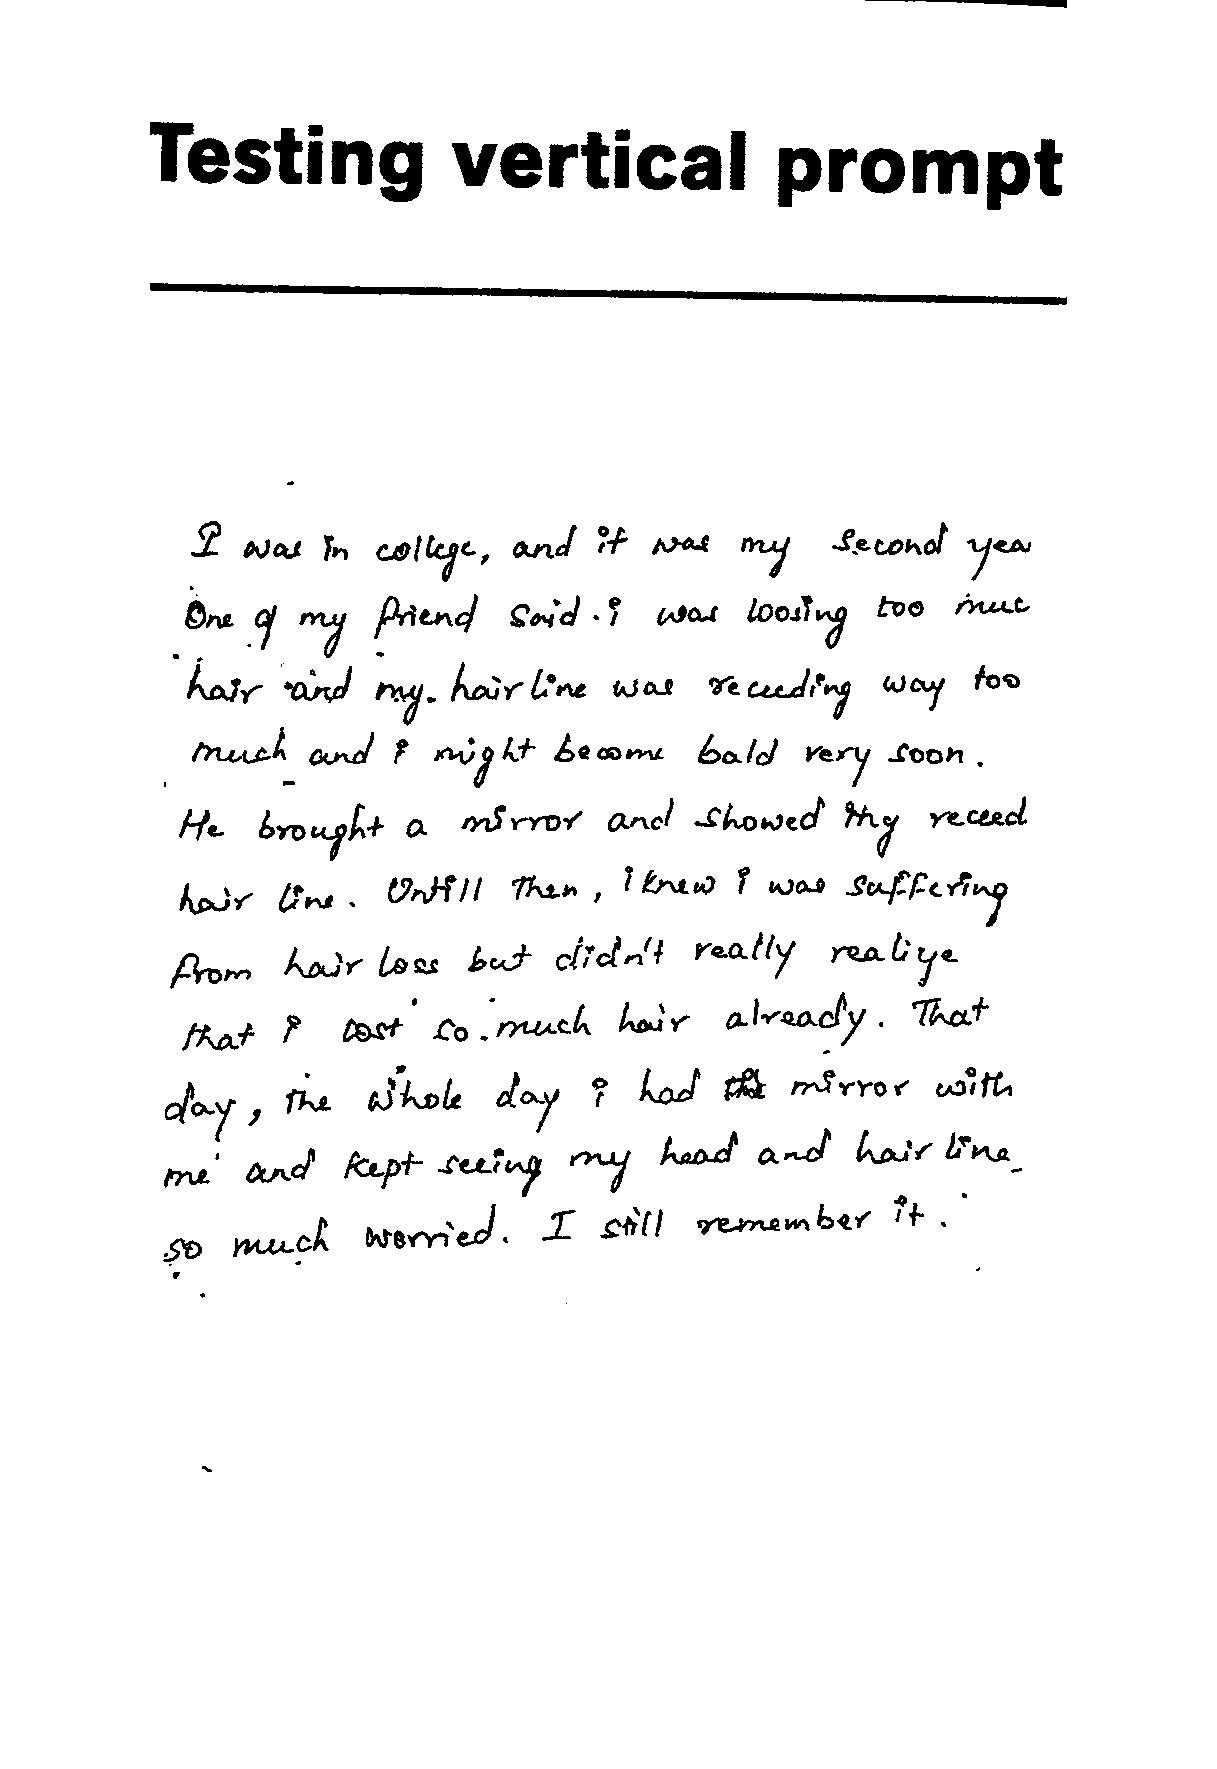 Testing vertical prompt
I was in college, and it was my second yea
One of my friend said i was loosing too muc
hair and my hairline was receeding way too
much and i might become bald very soon.
He brought a mirror and showed my receed
hair line. Untill then, i knew i was suffering
from hair loss but didn't really realize
that i lost so much hair already. That
day, the whole day i had the mirror with
me and kept seeing my head and hair line
so much worried. I still remember it.